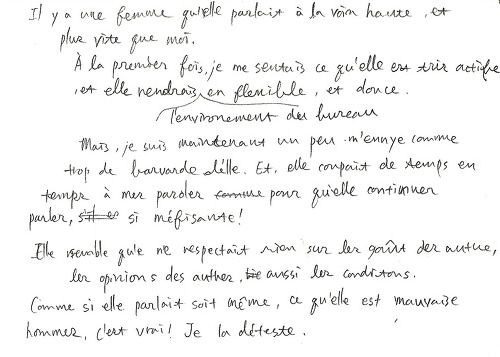 Il y a une femme qu'elle parlait à la voix haute, et
plus vite que moi.
À la prember fois, je me sentais ce qu'elle est très actique
, et elle rendrais en flexible, et douce.
l'environement du bureau
Mais, je suis maintenant un peu m'ennye comme
trop de barvarde d'elle. Et, elle coupait de temps en
temps à mes paroles comme pour qu'elle continuer
parler, si méfisante!
Elle semble que ne respectait rien sur les goûts des autrue,
les opinions des authes, aussi les conditons.
Comme si elle parlait soit même, ce qu'elle est mauvaise
hommes, c'est vrai! Je la déteste.